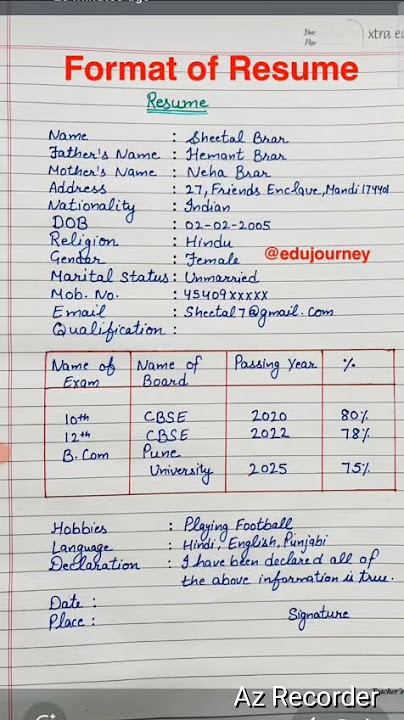 20 minutes ago
Date
Page
xtra ed
Format of Resume
Resume
Name : Sheetal Brar
Father's Name : Hemant Brar
Mother's Name : Neha Brar
Address : 27, Friends Enclave, Mandi 174401
Nationality : Indian
DOB : 02-02-2005
Religion : Hindu
@edujourney
Gender : Female
Marital Status : Unmarried
Mob. No. : 45409xxxxx
Email : Sheetal7@gmail.com
Qualification :
Name of Exam Name of Board Passing Year %
10th CBSE 2020 80%
12th CBSE 2022 78%
B.Com Pune University 2025 75%
Hobbies : Playing Football
Language : Hindi, English, Punjabi
Declaration : I have been declared all of
the above information is true.
Date :
Place :
Signature
eacher's
Az Recorder